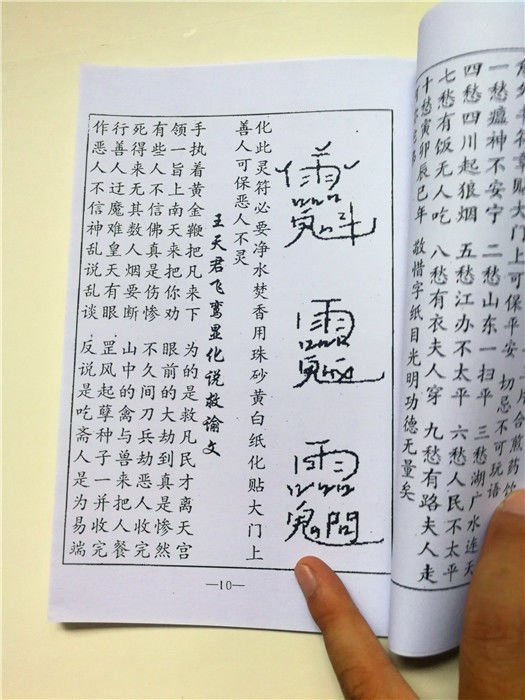 贴大门上可保平安 切忌不可玩语
一愁瘟神不安宁 二愁山东一扫平 三愁湖广水连天
四愁四川起狼烟 五愁江办不太平 六愁人民不太平
七愁有饭无人吃 八愁有衣夫人穿 九愁有路夫人走
十愁寅卯辰巳年 敬惜字纸目光明功德无量矣
化此灵符必要净水焚香用珠砂黄白纸化贴大门上
善人可保恶人不灵
王天君飞鸾显化说救谕文
手执着黄金鞭把凡来下 为的是救凡民才离天宫
领一旨上南天来把你劝 眼前的大劫到真是惨然
有些人不信佛真是伤惨 不久间刀兵劫恶人收完
死得来无其数人烟要断 山中的禽与兽来把人餐
行善人迂魔难皇天有眼 罡风起孽种子一并收完
作恶人不信神乱说乱谈 反说是吃斋人是为易端
—10—